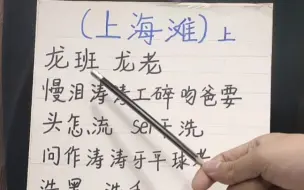 (上海滩)上
龙班 龙老
慢泪涛涛工碎吻爸要
头怎.流 ser干洗
问作涛涛牙平球
洗黑 洗